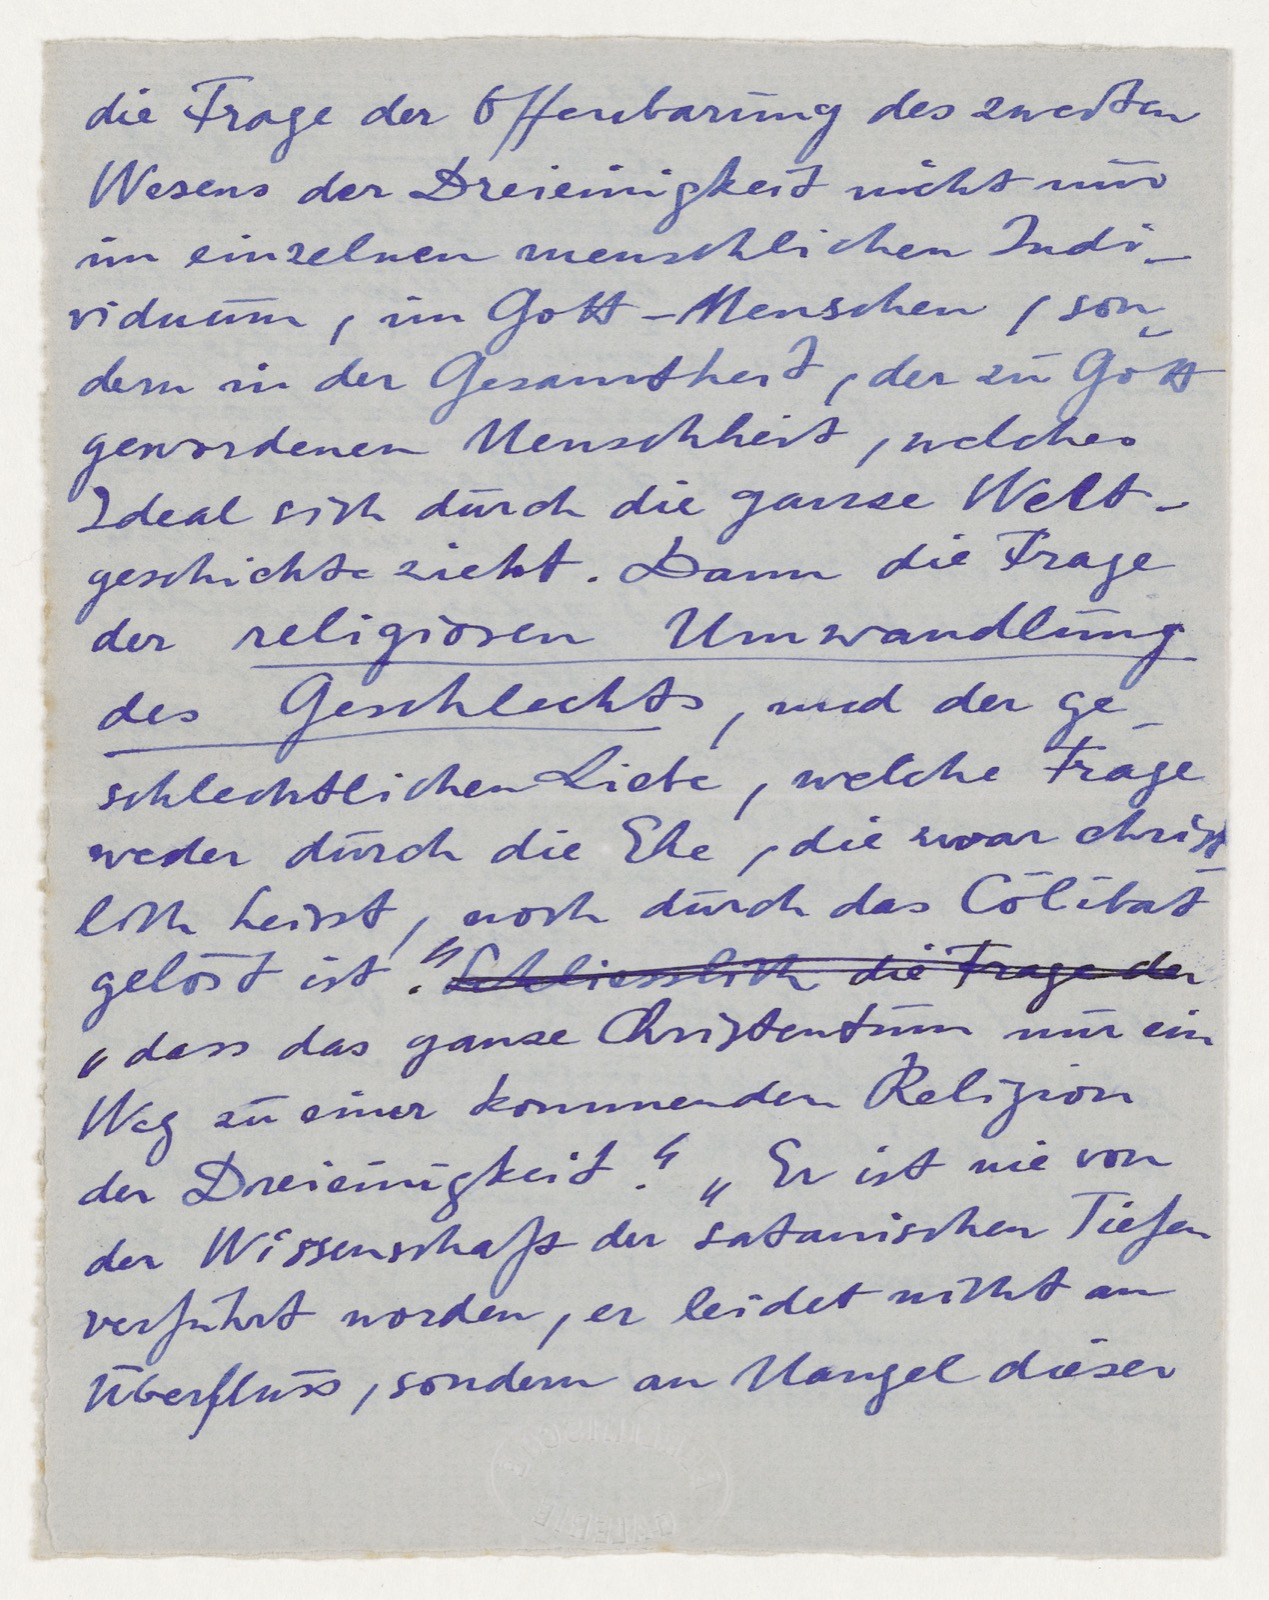 die Frage der Offenbarung des zweiten
Wesens der Dreieinigkeit nicht nur
im einzelnen menschlichen Indi-
viduum, im Gott-Menschen, son-
dern in der Gesamtheit, der zu Gott
gewordenen Menschheit, welches
Ideal sich durch die ganze Welt-
geschichte zieht. Dann die Frage
der religiösen Umwandlung
des Geschlechts, und der ge-
schlechtlichen Liebe, welche Frage
weder durch die Ehe, die zwar christ
lich heisst, noch durch das Cölibat
gelöst ist." Schliesslich die Frage der
„dass das ganze Christentum nur ein
Weg zu einer kommenden Religion
der Dreieinigkeit." „Er ist nie von
der Wissenschaft der satanischen Tiefen
verführt worden, er leidet nicht an
Überfluss, sondern an Mangel dieser
GALERIE